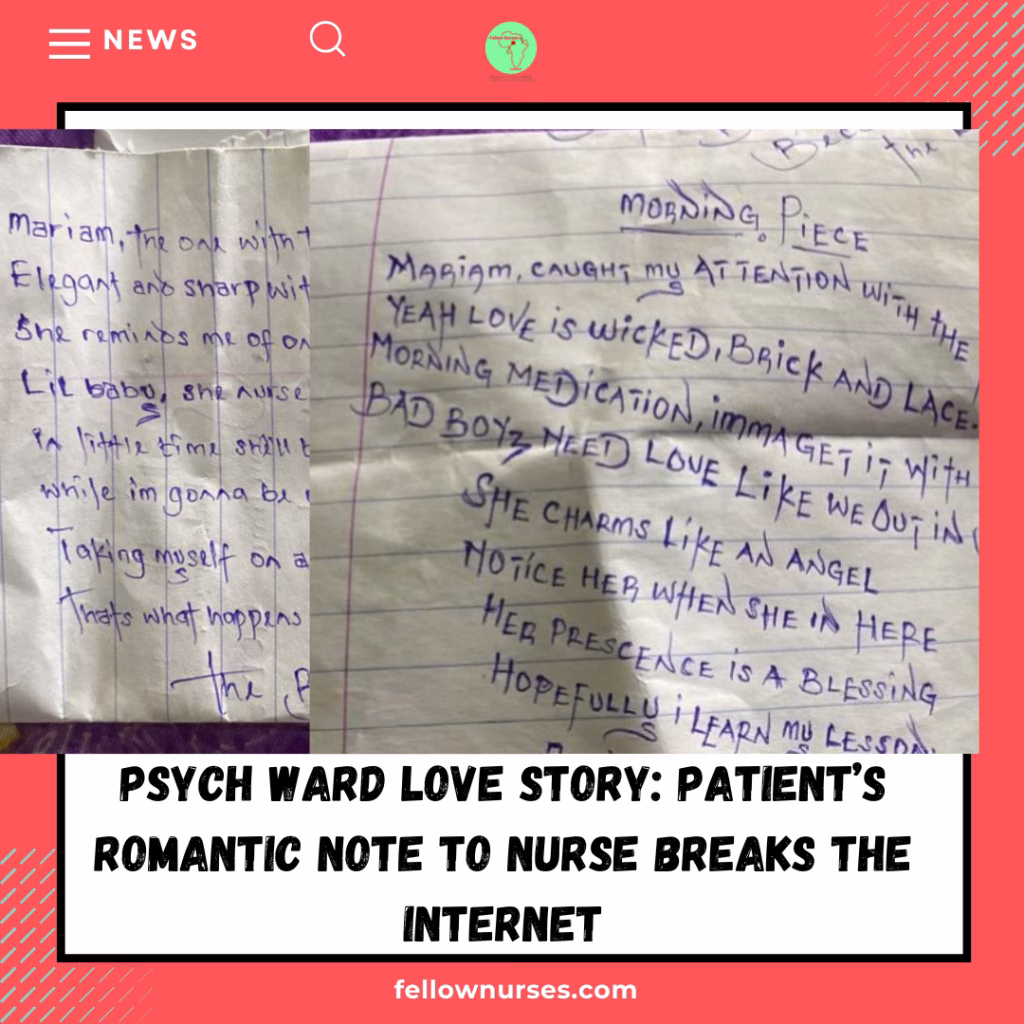 NEWS
Fellow Nurses
Mariam, the one with
Elegant and sharp wit
She reminds me of
Lil baby, she nurse
in little time still
while im gonna be
Taking myself on a
Thats what happens
The
the
MORNING. PiECE
MARiAM, CAUGHT my ATTENTION WiTH THE
YEAH LOVE iS WiCKED, BRiCK AND LACE.
MORNING MEDiCATiON, iMMA GET iT WiTH
BAD BOYz NEED LOVE LiKE WE OUT iN
SHE CHARMS LiKE AN ANGEL
NOTiCE HER WHEN SHE iN HERE
HER PRESCENCE iS A BLESSiNG
HOPEFULLY i LEARN my LESSON
PSYCH WARD LOVE STORY: PATIENT'S
ROMANTIC NOTE TO NURSE BREAKS THE
INTERNET
fellownurses.com